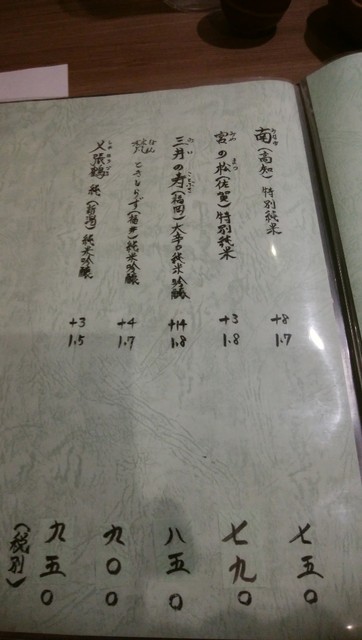 南(高知)特別純米
+8
1.7
七五〇
宮の松(佐賀)特別純米
+3
1.8
七九〇
三井の寿(福岡)大辛口純米吟醸
+14
1.8
八五〇
梵 ときしらず(福井)純米吟醸
+4
1.7
九〇〇
〆張鶴 純(新潟)純米吟醸
+3
1.5
九五〇
(税別)